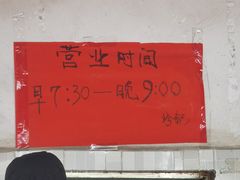 营业时间
早7:30—晚9:00